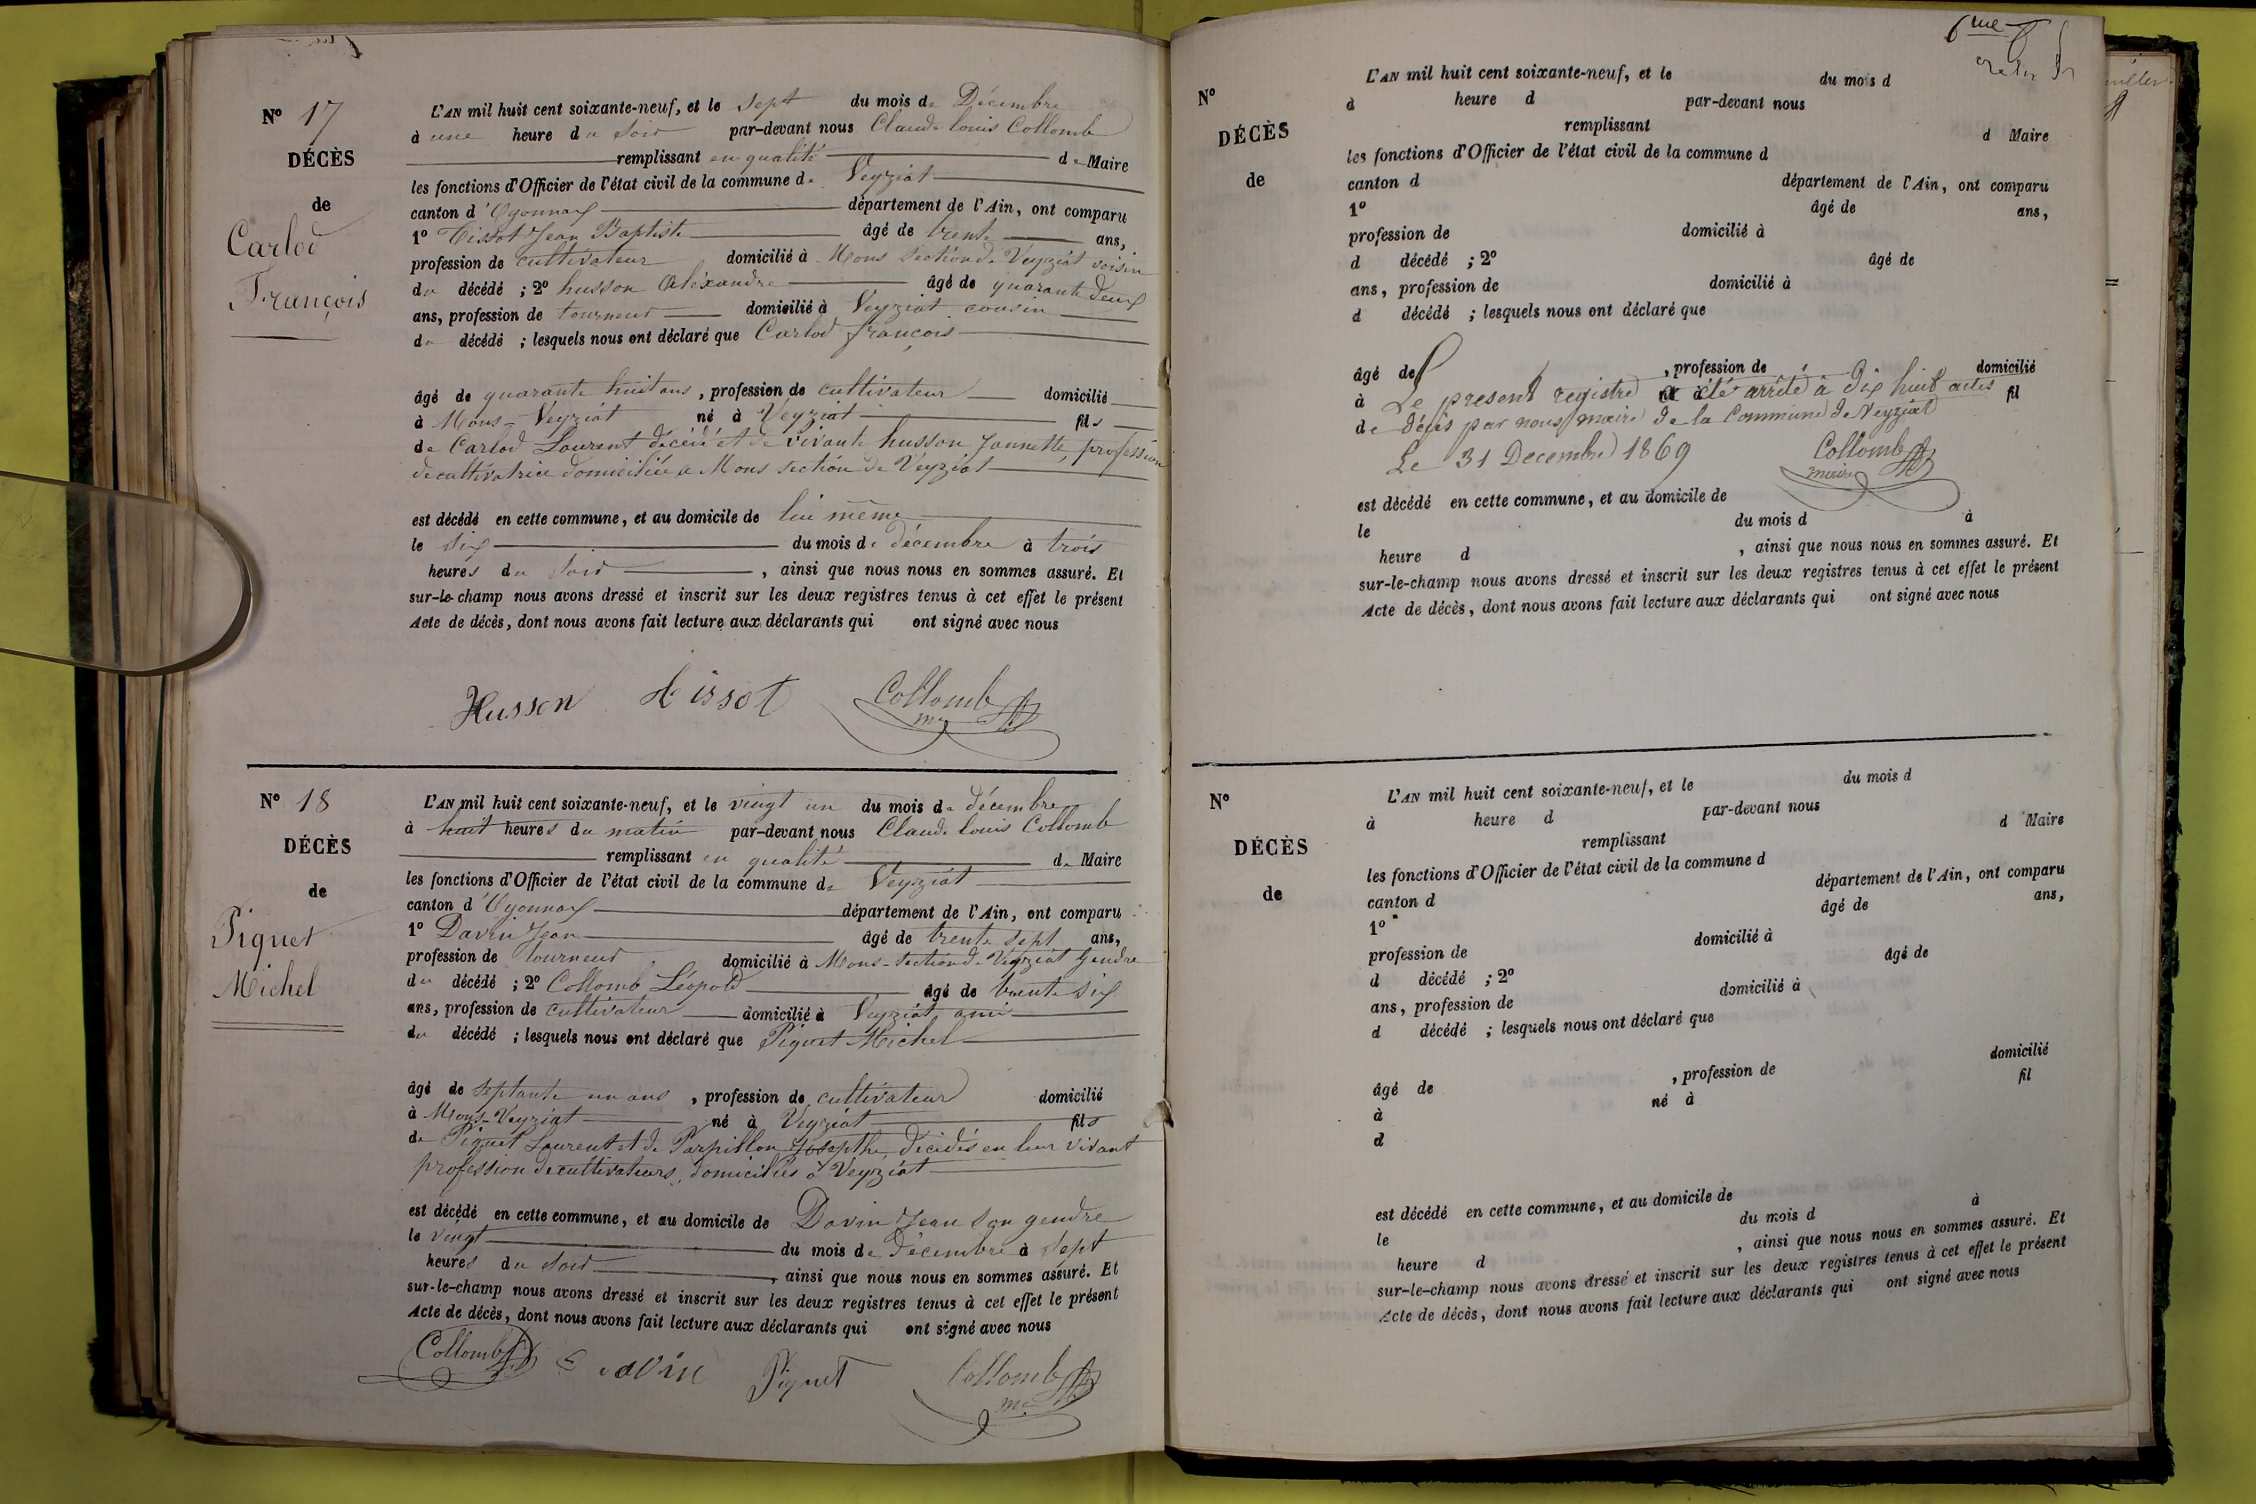 Nº 17
DÉCÈS
de
Carlod
François
L'AN mil huit cent soixante-neuf, et le sept du mois de Décembre
à une heure du soir par-devant nous Claude louis Collomb
remplissant en qualité de Maire
les fonctions d'Officier de l'état civil de la commune de Veyziat
canton d'Oyonnax département de l'Ain, ont comparu
1º Tissot Jean Baptiste âgé de trente ans,
profession de cultivateur domicilié à Mons section de Veyziat voisin
du décédé ; 2º husson Aléxandre âgé de quarante deux
ans, profession de tourneur domicilié à Veyziat cousin
du décédé ; lesquels nous ont déclaré que Carlod françois
âgé de quarante huit ans, profession de cultivateur domicilié
à Mons-Veyziat né à Veyziat fils
de Carlod Laurent décédé et de vivante husson Jannette, profession
de cultivatrice domiciliée a Mons section de Veyziat
est décédé en cette commune, et au domicile de lui même
le six du mois de décembre à trois
heures du soir, ainsi que nous nous en sommes assuré. Et
sur-le-champ nous avons dressé et inscrit sur les deux registres tenus à cet effet le présent
Acte de décès, dont nous avons fait lecture aux déclarants qui ont signé avec nous
Husson tissot Collomb
Nº 18
DÉCÈS
de
Piquet
Michel
L'AN mil huit cent soixante-neuf, et le vingt un du mois de décembre
à huit heures du matin par-devant nous Claude louis Collomb
remplissant en qualité de Maire
les fonctions d'Officier de l'état civil de la commune de Veyziat
canton d'Oyonnax département de l'Ain, ont comparu
1º Davin Jean âgé de trente sept ans,
profession de tourneur domicilié à Mons-section de Veyziat gendre
du décédé ; 2º Collomb Léopold âgé de trente six
ans, profession de cultivateur domicilié à Veyziat ami
du décédé ; lesquels nous ont déclaré que Piquet Michel
âgé de septante un ans, profession de cultivateur domicilié
à Mons-Veyziat né à Veyziat fils
de Piquet Laurent et de Parpillon Josepthe, décédés en leur vivant
profession de cultivateurs, domiciliés à Veyziat
est décédé en cette commune, et au domicile de Davin Jean son gendre
le vingt du mois de décembre à sept
heures du soir, ainsi que nous nous en sommes assuré. Et
sur-le-champ nous avons dressé et inscrit sur les deux registres tenus à cet effet le présent
Acte de décès, dont nous avons fait lecture aux déclarants qui ont signé avec nous
Collomb davin Piquet Collomb
6me
Nº
DÉCÈS
de
L'AN mil huit cent soixante-neuf, et le du mois d
à heure d par-devant nous
remplissant d Maire
les fonctions d'Officier de l'état civil de la commune d
canton d département de l'Ain, ont comparu
1º âgé de ans,
profession de domicilié à
d décédé ; 2º âgé de
ans, profession de domicilié à
d décédé ; lesquels nous ont déclaré que
âgé de , profession de domicilié
à Le present registre a été arrêté à Dix huit actes fil
de décès par nous maire de la Commune de Veyziat
Le 31 Decembre 1869 Collomb
maire
est décédé en cette commune, et au domicile de
le du mois d à
heure d , ainsi que nous nous en sommes assuré. Et
sur-le-champ nous avons dressé et inscrit sur les deux registres tenus à cet effet le présent
Acte de décès, dont nous avons fait lecture aux déclarants qui ont signé avec nous
Nº
DÉCÈS
de
L'AN mil huit cent soixante-neuf, et le du mois d
à heure d par-devant nous
remplissant d Maire
les fonctions d'Officier de l'état civil de la commune d
canton d département de l'Ain, ont comparu
1º âgé de ans,
profession de domicilié à
d décédé ; 2º âgé de
ans, profession de domicilié à
d décédé ; lesquels nous ont déclaré que
âgé de , profession de domicilié
à né à fil
d
est décédé en cette commune, et au domicile de
le du mois d à
heure d , ainsi que nous nous en sommes assuré. Et
sur-le-champ nous avons dressé et inscrit sur les deux registres tenus à cet effet le présent
Acte de décès, dont nous avons fait lecture aux déclarants qui ont signé avec nous